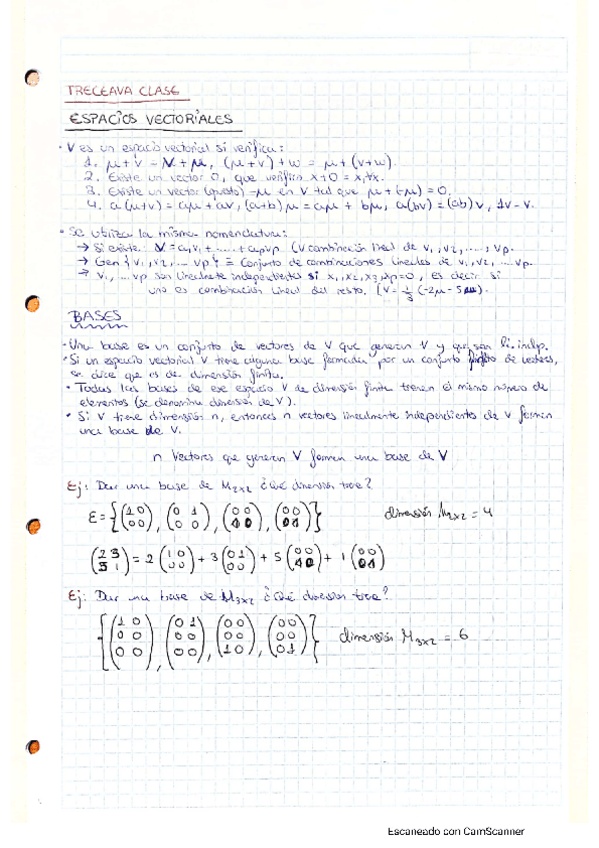 TRECEAVA CLASE
ESPACIOS VECTORIALES
· V es un espacio vectorial si verifica:
1. μ+v = v+μ, (μ+v)+w = μ+(v+w).
2. Existe un vector 0, que verifica x+0 = x, ∀x.
3. Existe un vector (opuesto) -μ en V tal que μ+(-μ) = 0.
4. a(μ+v) = aμ+av, (a+b)μ = aμ + bμ, a(bv) = (ab)v, 1v = v.
· Se utiliza la misma nomenclatura:
→ Si existe: V = a₁v₁ + ..... + apvp (v combinación lineal de v₁, v₂, ...., vp.
→ Gen {v₁, v₂, ... vp} = Conjunto de combinaciones lineales de v₁, v₂, ... vp.
→ v₁, ... vp son linealmente independientes si x₁, x₂, x₃, xp = 0, es decir si
uno es combinación lineal del resto. (v = 1/3 (-2μ - 5
BASES
· Una base es un conjunto de vectores de V que generan V y que son li. indp.
· Si un espacio vectorial V tiene alguna base formada por un conjunto finito de vectores,
se dice que es de dimensión finita.
· Todas las bases de ese espacio V de dimensión finita tienen el mismo número de
elementos (se denomina dimensión de V).
· Si V tiene dimensión n, entonces n vectores linealmente independientes de V forman
una base de V.
n Vectores que generan V forman una base de V
Ej: Dar una base de M2x2 ¿Qué dimensión tiene?
ε = {(1 0 / 0 0), (0 1 / 0 0), (0 0 / 1 0), (0 0 / 0 1)} dimensión M2x2 = 4
(2 3 / 5 1) = 2 (1 0 / 0 0) + 3 (0 1 / 0 0) + 5 (0 0 / 1 0) + 1 (0 0 / 0 1)
Ej: Dar una base de M3x2 ¿Qué dimensión tiene?
{(1 0 / 0 0 / 0 0), (0 1 / 0 0 / 0 0), (0 0 / 0 0 / 1 0), (0 0 / 0 0 / 0 1)} dimensión M3x2 = 6
Escaneado con CamScanner